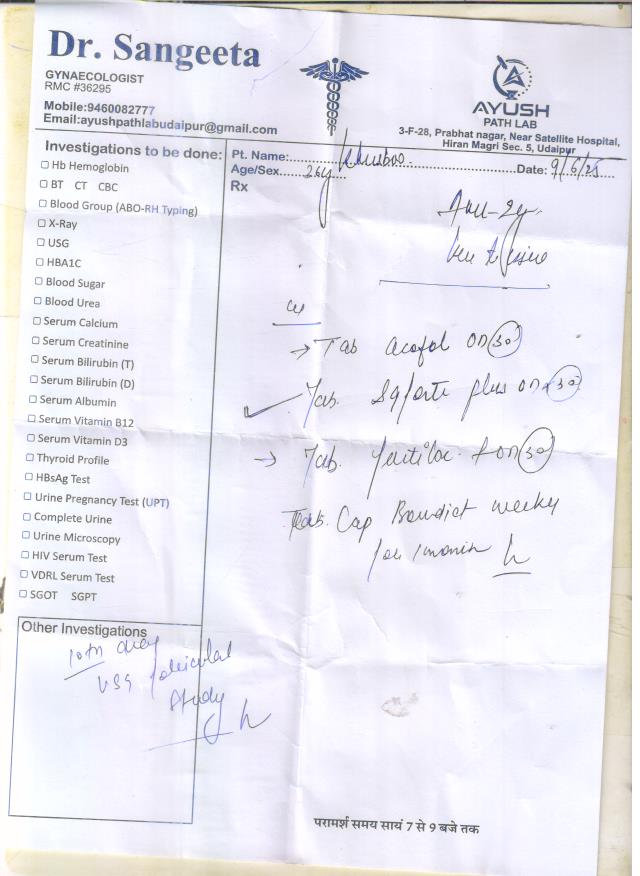 Dr. Sangeeta
GYNAECOLOGIST
RMC #36295
Mobile:9460082777
Email:ayushpathlabudaipur@gmail.com
AYUSH
PATH LAB
3-F-28, Prabhat nagar, Near Satellite Hospital,
Hiran Magri Sec. 5, Udaipur
Pt. Name: Khusboo
Date: 9/6/25
Age/Sex 26y
Rx
Investigations to be done:
Hb Hemoglobin
BT CT CBC
Blood Group (ABO-RH Typing)
X-Ray
USG
HBA1C
Blood Sugar
Blood Urea
Serum Calcium
Serum Creatinine
Serum Bilirubin (T)
Serum Bilirubin (D)
Serum Albumin
Serum Vitamin B12
Serum Vitamin D3
Thyroid Profile
HBsAg Test
Urine Pregnancy Test (UPT)
Complete Urine
Urine Microscopy
HIV Serum Test
VDRL Serum Test
SGOT SGPT
Other Investigations
10th day
USG follicular
study
Tab OD 30
Tab. plus OD 30
Tab. OD 30
Cap weekly
for 1 month
परामर्श समय सायं 7 से 9 बजे तक